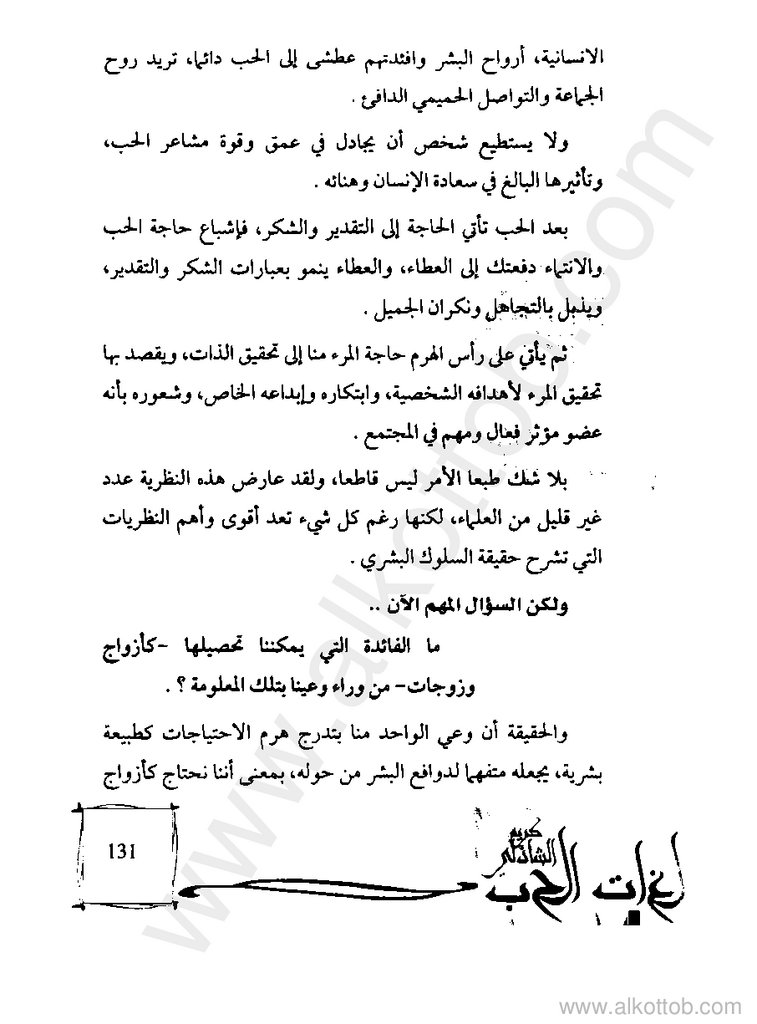 الانسانية، أرواح البشر وافئدتهم عطشى إلى الحب دائما، تريد روح
الجماعة والتواصل الحميمي الدافئ .
ولا يستطيع شخص أن يجادل في عمق وقوة مشاعر الحب،
وتأثيرها البالغ في سعادة الإنسان وهنائه .
بعد الحب تأتي الحاجة إلى التقدير والشكر، فإشباع حاجة الحب
والانتماء دفعتك إلى العطاء، والعطاء ينمو بعبارات الشكر والتقدير،
ويذبل بالتجاهل ونكران الجميل .
ثم يأتي على رأس الهرم حاجة المرء منا إلى تحقيق الذات، ويقصد بها
تحقيق المرء لأهدافه الشخصية، وابتكاره وإبداعه الخاص، وشعوره بأنه
عضو مؤثر فعال ومهم في المجتمع .
بلا شك طبعا الأمر ليس قاطعا، ولقد عارض هذه النظرية عدد
غير قليل من العلماء، لكنها رغم كل شيء تعد أقوى وأهم النظريات
التي تشرح حقيقة السلوك البشري .
ولكن السؤال المهم الآن ..
ما الفائدة التي يمكننا تحصيلها -كأزواج
وزوجات- من وراء وعينا بتلك المعلومة ؟ .
والحقيقة أن وعي الواحد منا بتدرج هرم الاحتياجات كطبيعة
بشرية، يجعله متفهما لدوافع البشر من حوله، بمعنى أننا نحتاج كأزواج
131
كريم
الشاذلي
لغات الحب
www.alkottob.com
www.alkottob.com